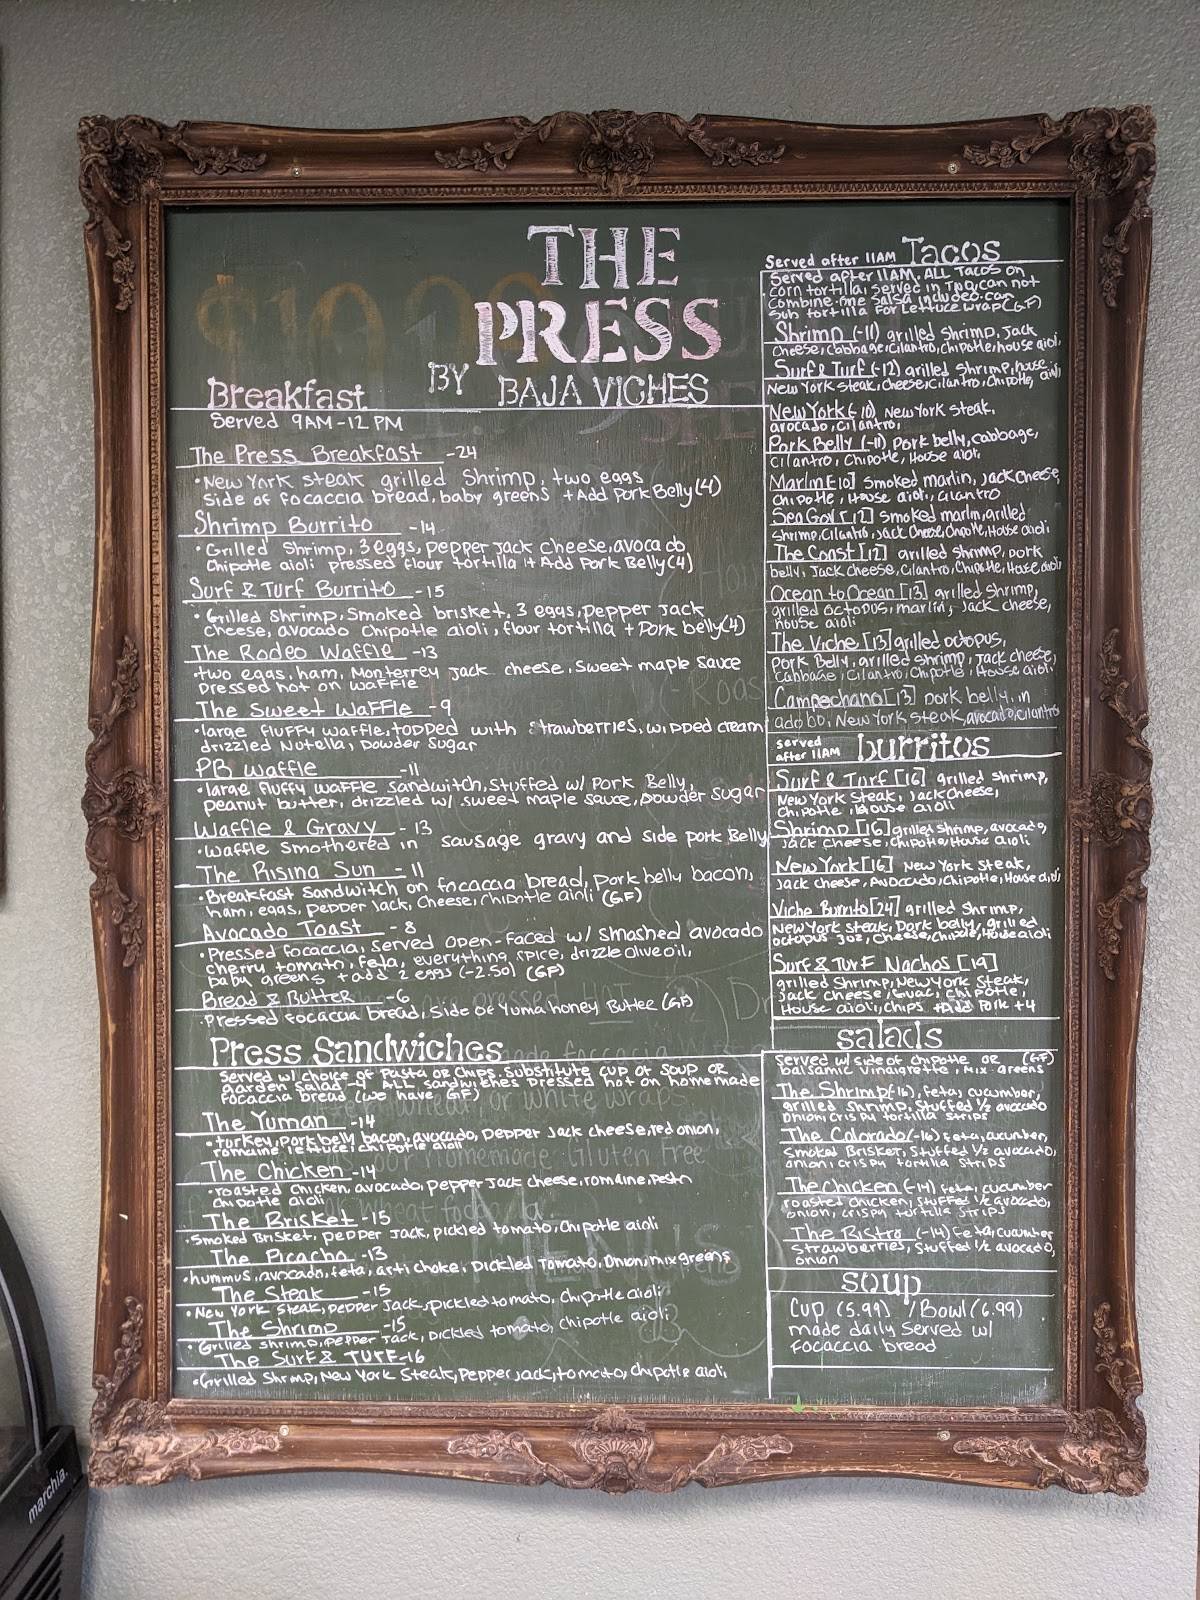 THE
PRESS
BY BAJA VICHES
Breakfast
Served 9AM-12 PM
The Press Breakfast -24
• New York steak grilled Shrimp, two eggs
side of focaccia bread, baby greens + Add Pork Belly (4)
Shrimp Burrito -14
• Grilled Shrimp, 3 eggs, pepper jack cheese, avocado
Chipotle aioli pressed flour tortilla + Add Pork Belly (4)
Surf & Turf Burrito -15
• Grilled Shrimp, Smoked brisket, 3 eggs, pepper jack
cheese, avocado chipotle aioli, flour tortilla + Pork belly (4)
The Rodeo Waffle -13
• two eggs, ham, Monterrey jack cheese, sweet maple sauce
pressed hot on waffle
The Sweet Waffle -9
• large fluffy waffle, topped with strawberries, wipped cream
drizzled Nutella, powder sugar
PB Waffle -11
• large fluffy waffle sandwitch, stuffed w/ Pork Belly,
peanut butter, drizzled w/ sweet maple sauce, powder sugar
Waffle & Gravy - 13
• waffle smothered in sausage gravy and side pork Belly
The Rising Sun - 11
• Breakfast sandwitch on focaccia bread, pork belly bacon,
ham, eggs, pepper jack, cheese, chipotle aioli (G.F)
Avocado Toast - 8
• Pressed focaccia, served open-faced w/ smashed avocado
cherry tomato, feta, everything spice, drizzle olive oil,
baby greens + add 2 eggs (-2.50) (GF)
Bread & Butter -6
• Pressed focaccia bread, side of Yuma honey Butter (G.F)
Press Sandwiches
Served w/ choice of Pasta or Chips. Substitute cup of soup or
garden salad -4 ALL sandwitches pressed hot on homemade
focaccia bread (we have GF)
The Yuman -14
• turkey, pork belly bacon, avocado, pepper jack cheese, red onion,
romaine lettuce, chipotle aioli
The Chicken -14
• roasted chicken, avocado, pepper jack cheese, romaine, pesto
chipotle aioli
The Brisket -15
• Smoked Brisket, pepper jack, pickled tomato, chipotle aioli
The Picacho -13
• hummus, avocado, feta, artichoke, pickled tomato, onion, mix greens
The Steak -15
• New York steak, pepper jack, pickled tomato, chipotle aioli
The Shrimp -15
• Grilled shrimp, pepper jack, pickled tomato, chipotle aioli
The Surf & TURF-16
• Grilled Shrimp, New York Steak, Pepper jack, tomato, chipotle aioli
Served after 11AM Tacos
Served after 11AM. ALL Tacos on
corn tortilla, served in TRQ, can not
combine. one salsa included. can
sub tortilla for lettuce wrap (G.F)
Shrimp (-11) grilled Shrimp, Jack
cheese, cabbage, cilantro, chipotle, house aioli
Surf & Turf (-12) grilled Shrimp, house
New York steak, cheese, cilantro, chipotle, aioli
New York (-10) New York steak,
avocado, cilantro,
Pork Belly (-11) Pork belly, cabbage,
cilantro, chipotle, House aioli
Marlin [-10] smoked marlin, jack cheese,
chipotle, House aioli, cilantro
Sea Gov [12] smoked marlin, grilled
shrimp, cilantro, jack cheese, chipotle, House aioli
The Coast [12] grilled shrimp, pork
belly, jack cheese, cilantro, chipotle, House aioli
Ocean to Ocean [13] grilled shrimp,
grilled octopus, marlin, jack cheese,
house aioli
The Viche [13] grilled octopus,
Pork Belly, grilled shrimp, jack cheese,
cabbage, cilantro, chipotle, House aioli
Campechano [13] pork belly, in
adobo, New York steak, avocado, cilantro
served after 11AM burritos
Surf & Turf [16] grilled shrimp,
New York Steak, Jack cheese,
Chipotle, House aioli
Shrimp [16] grilled shrimp, avocado,
Jack cheese, chipotle, House aioli
New York [16] New York steak,
Jack cheese, Avocado, chipotle, House aioli
Viche Burrito [24] grilled shrimp,
New York steak, Pork belly, grilled
octopus 3oz, cheese, chipotle, House aioli
Surf & Turf Nachos [19]
grilled shrimp, New York steak,
Jack cheese, Guac, chipotle,
House aioli, chips +Add Pork +4
salads
Served w/ side of chipotle or (G.F)
balsamic vinaigrette, mix greens
The Shrimp (-16), feta, cucumber,
grilled shrimp, stuffed 1/2 avocado
onion, crispy tortilla strips
The Colorado (-16) Feta, cucumber,
smoked Brisket, stuffed 1/2 avocado,
onion, crispy tortilla strips
The Chicken (-14) feta, cucumber
roasted chicken, stuffed 1/2 avocado,
onion, crispy tortilla strips
The Bistro (-14) Feta, cucumber
strawberries, stuffed 1/2 avocado,
onion
soup
Cup (5.99) / Bowl (6.99)
made daily served w/
focaccia bread
marchia.